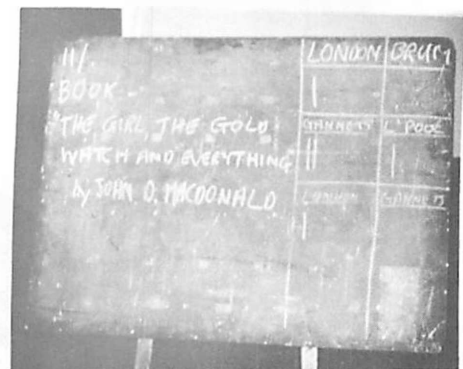 11/.
BOOK -
"THE GIRL, THE GOLD
WATCH AND EVERYTHING"
by JOHN D. MACDONALD
LONDON BRUM
|
GANNETS L'POOL
|| |
LONDON GANNETS
|